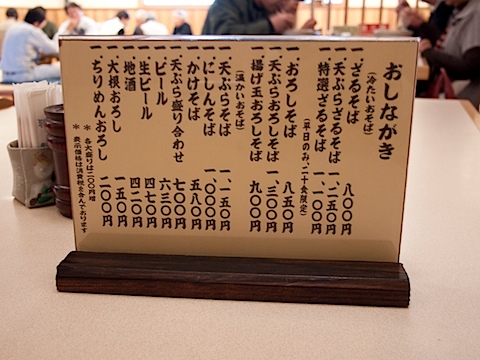 おしながき
(冷たいおそば)
一、ざるそば 八〇〇円
一、天ぷらざるそば 一、二五〇円
一、特選ざるそば 一、一〇〇円
(平日のみ、二十食限定)
一、おろしそば 八五〇円
一、天ぷらおろしそば 一、三〇〇円
一、揚げ玉おろしそば 九〇〇円
(温かいおそば)
一、天ぷらそば 一、一五〇円
一、にしんそば 一、〇〇〇円
一、かけそば 五八〇円
一、天ぷら盛り合わせ 七〇〇円
一、ビール 六三〇円
一、生ビール 四七〇円
一、地酒 四二〇円
一、大根おろし 一五〇円
一、ちりめんおろし 二〇〇円
＊ 各大盛りは二〇〇円増
＊ 表示価格は消費税を含んでおります